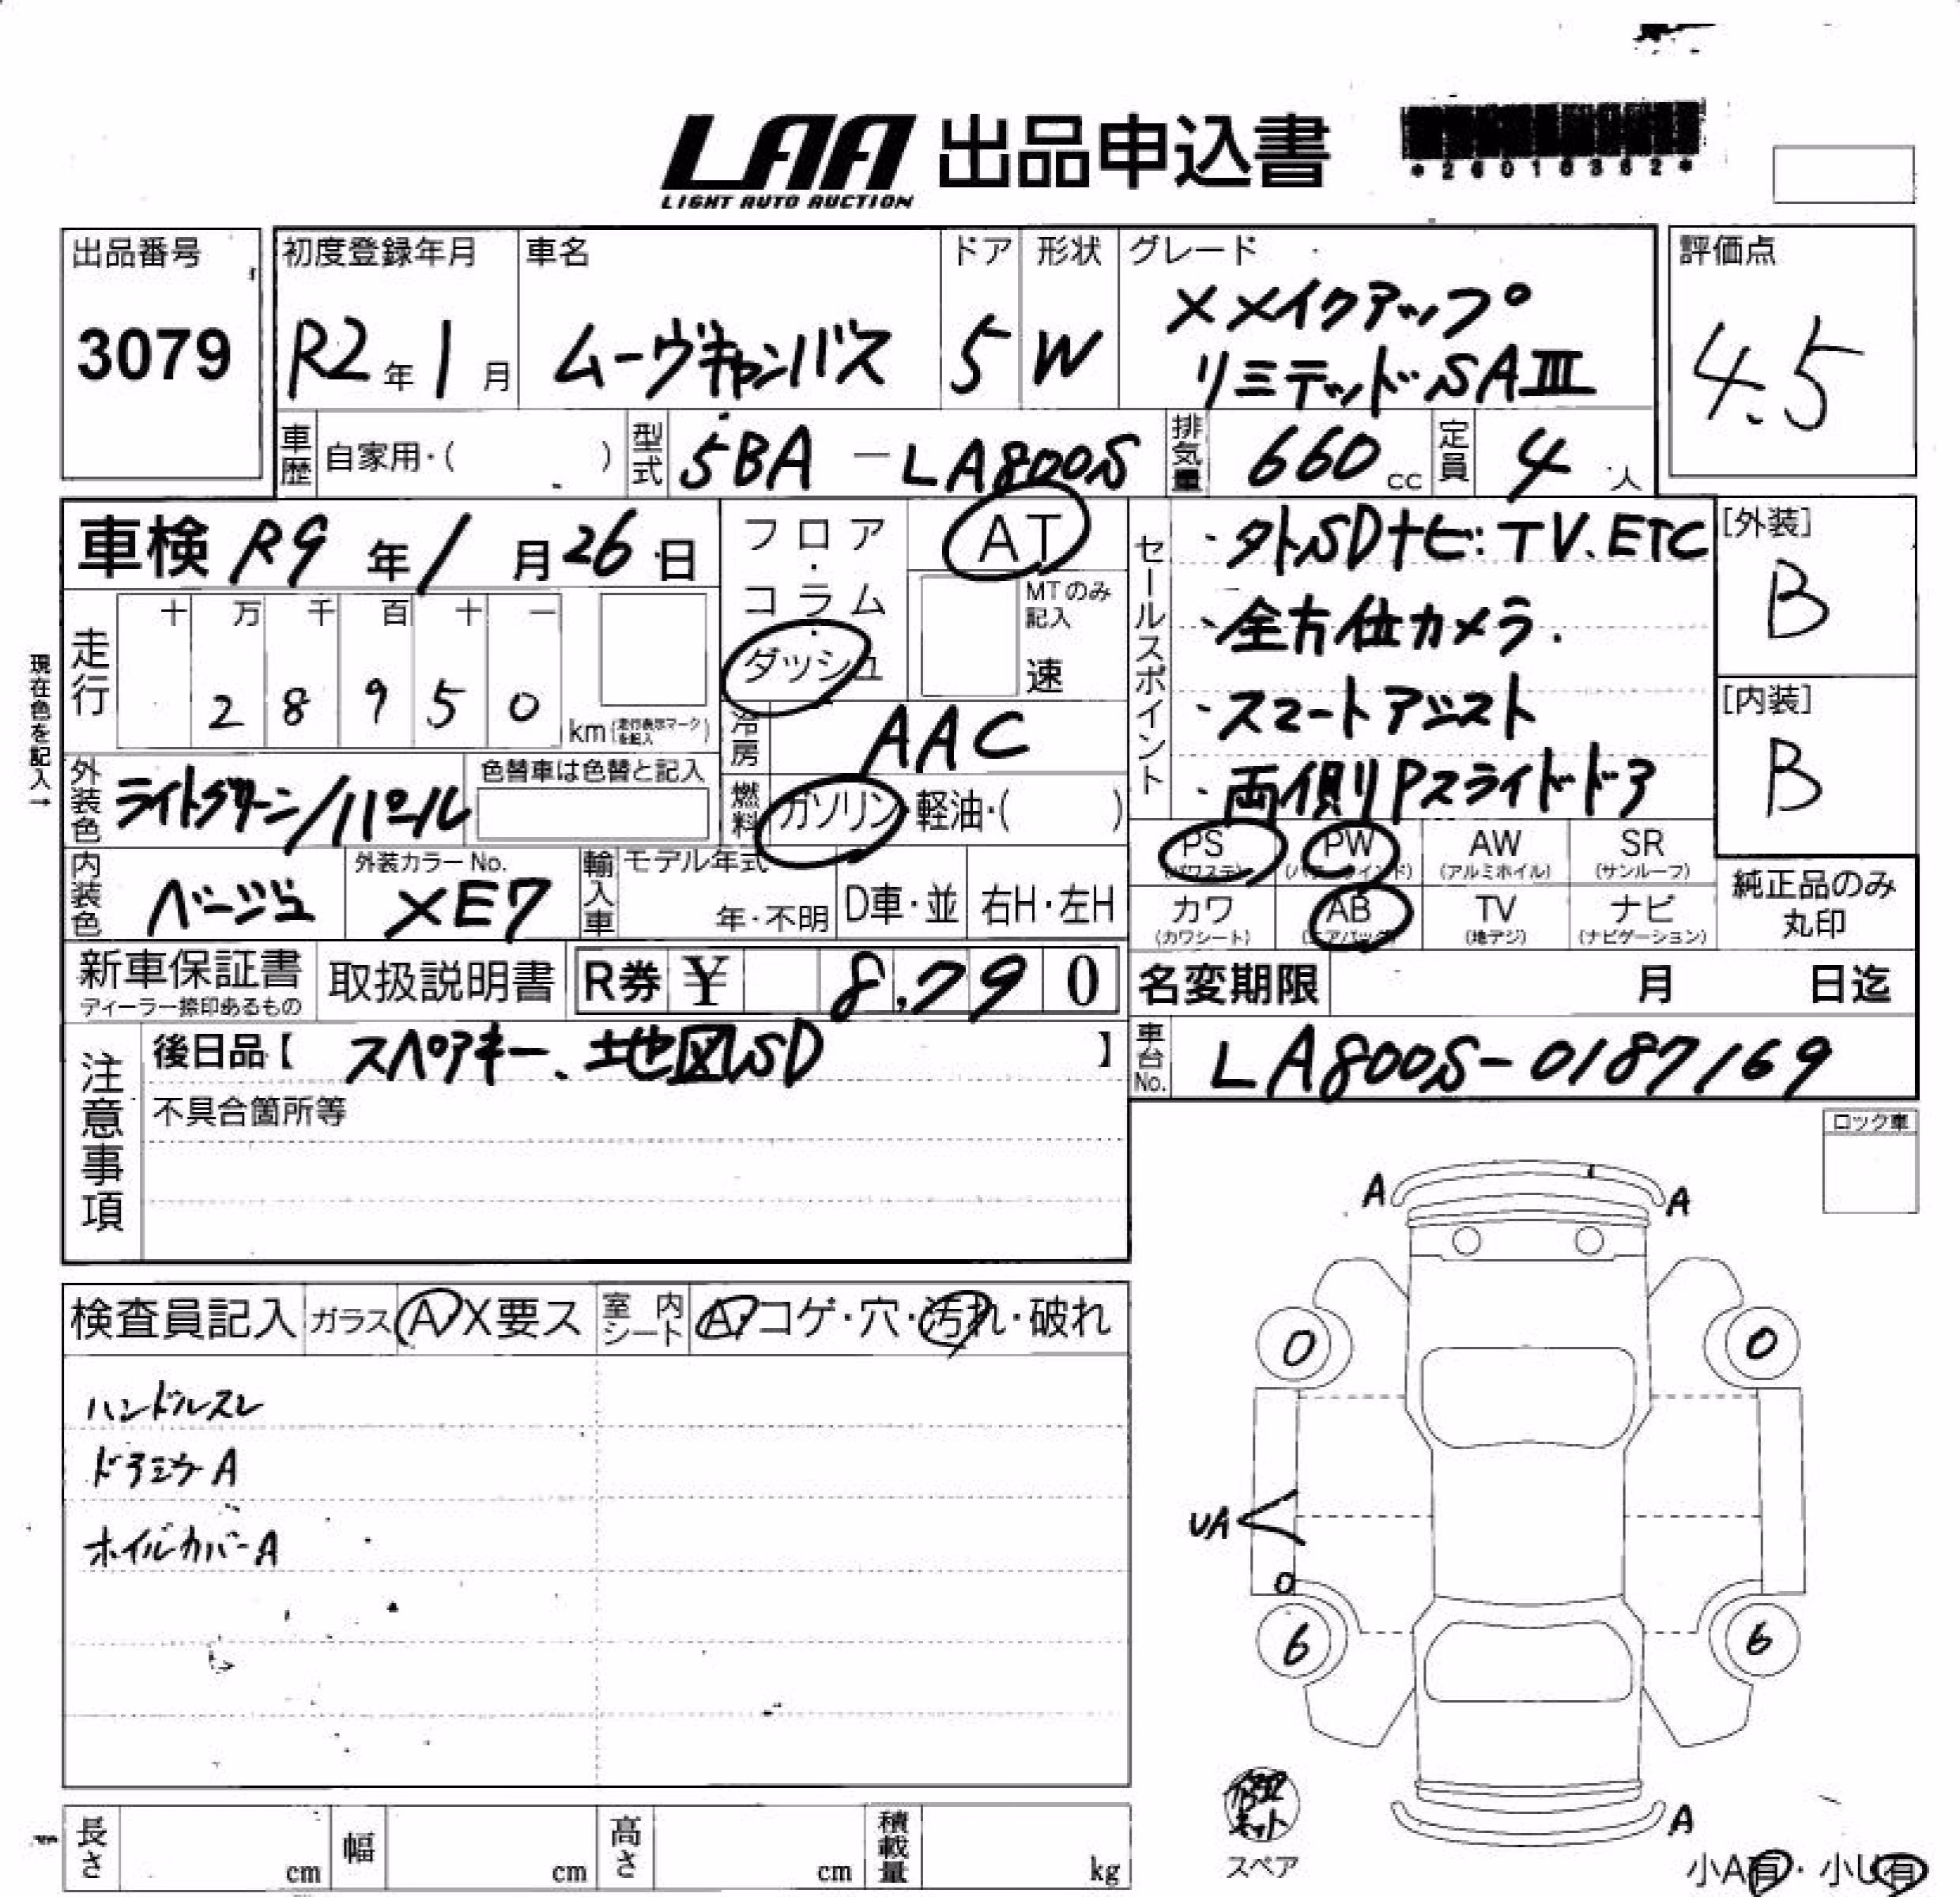 LAA 出品申込書
LIGHT AUTO AUCTION
*26010362*
出品番号
3079
初度登録年月
R2年1月
車名
ムーヴキャンバス
ドア
5
形状
W
グレード
Xメイクアップ
リミテッドSAⅢ
評価点
4.5
車歴 自家用・( )
型式 5BA-LA800S
排気量 660cc
定員 4人
車検 R9年1月26日
フロア・コラム・ダッシュ
AT
MTのみ記入
速
セールスポイント
・外SDナビ:TV、ETC
・全方位カメラ.
・スマートアシスト
・両側Pスライドドア
[外装]
B
[内装]
B
現在色を記入→
走行
十 万 千 百 十 一
2 8 9 5 0 km (走行表示マークを記入)
冷房 AAC
外装色 ライトグリーン/パール
色替車は色替と記入
燃料 ガソリン・軽油・( )
PS (パワステ)
PW (パワーウインド)
AW (アルミホイル)
SR (サンルーフ)
内装色 ベージュ
外装カラーNo.
XE7
輸入車 モデル年式
年・不明
D車・並
右H・左H
カワ (カワシート)
AB (エアバッグ)
TV (地デジ)
ナビ (ナビゲーション)
純正品のみ丸印
新車保証書
ディーラー捺印あるもの
取扱説明書
R券 ¥ 8,790
名変期限 月 日迄
注意事項
後日品【 スペアキー、地図SD 】
不具合箇所等
車台No. LA800S-0187169
ロック車
A A
検査員記入 ガラス A X要ス
室内シート A・コゲ・穴・汚れ・破れ
ハンドルスレ
ドアミラーA
ホイルカバーA
0 0
UA
0
6 6
A
スペア
小A有・小U有
長さ cm
幅 cm
高さ cm
積載量 kg